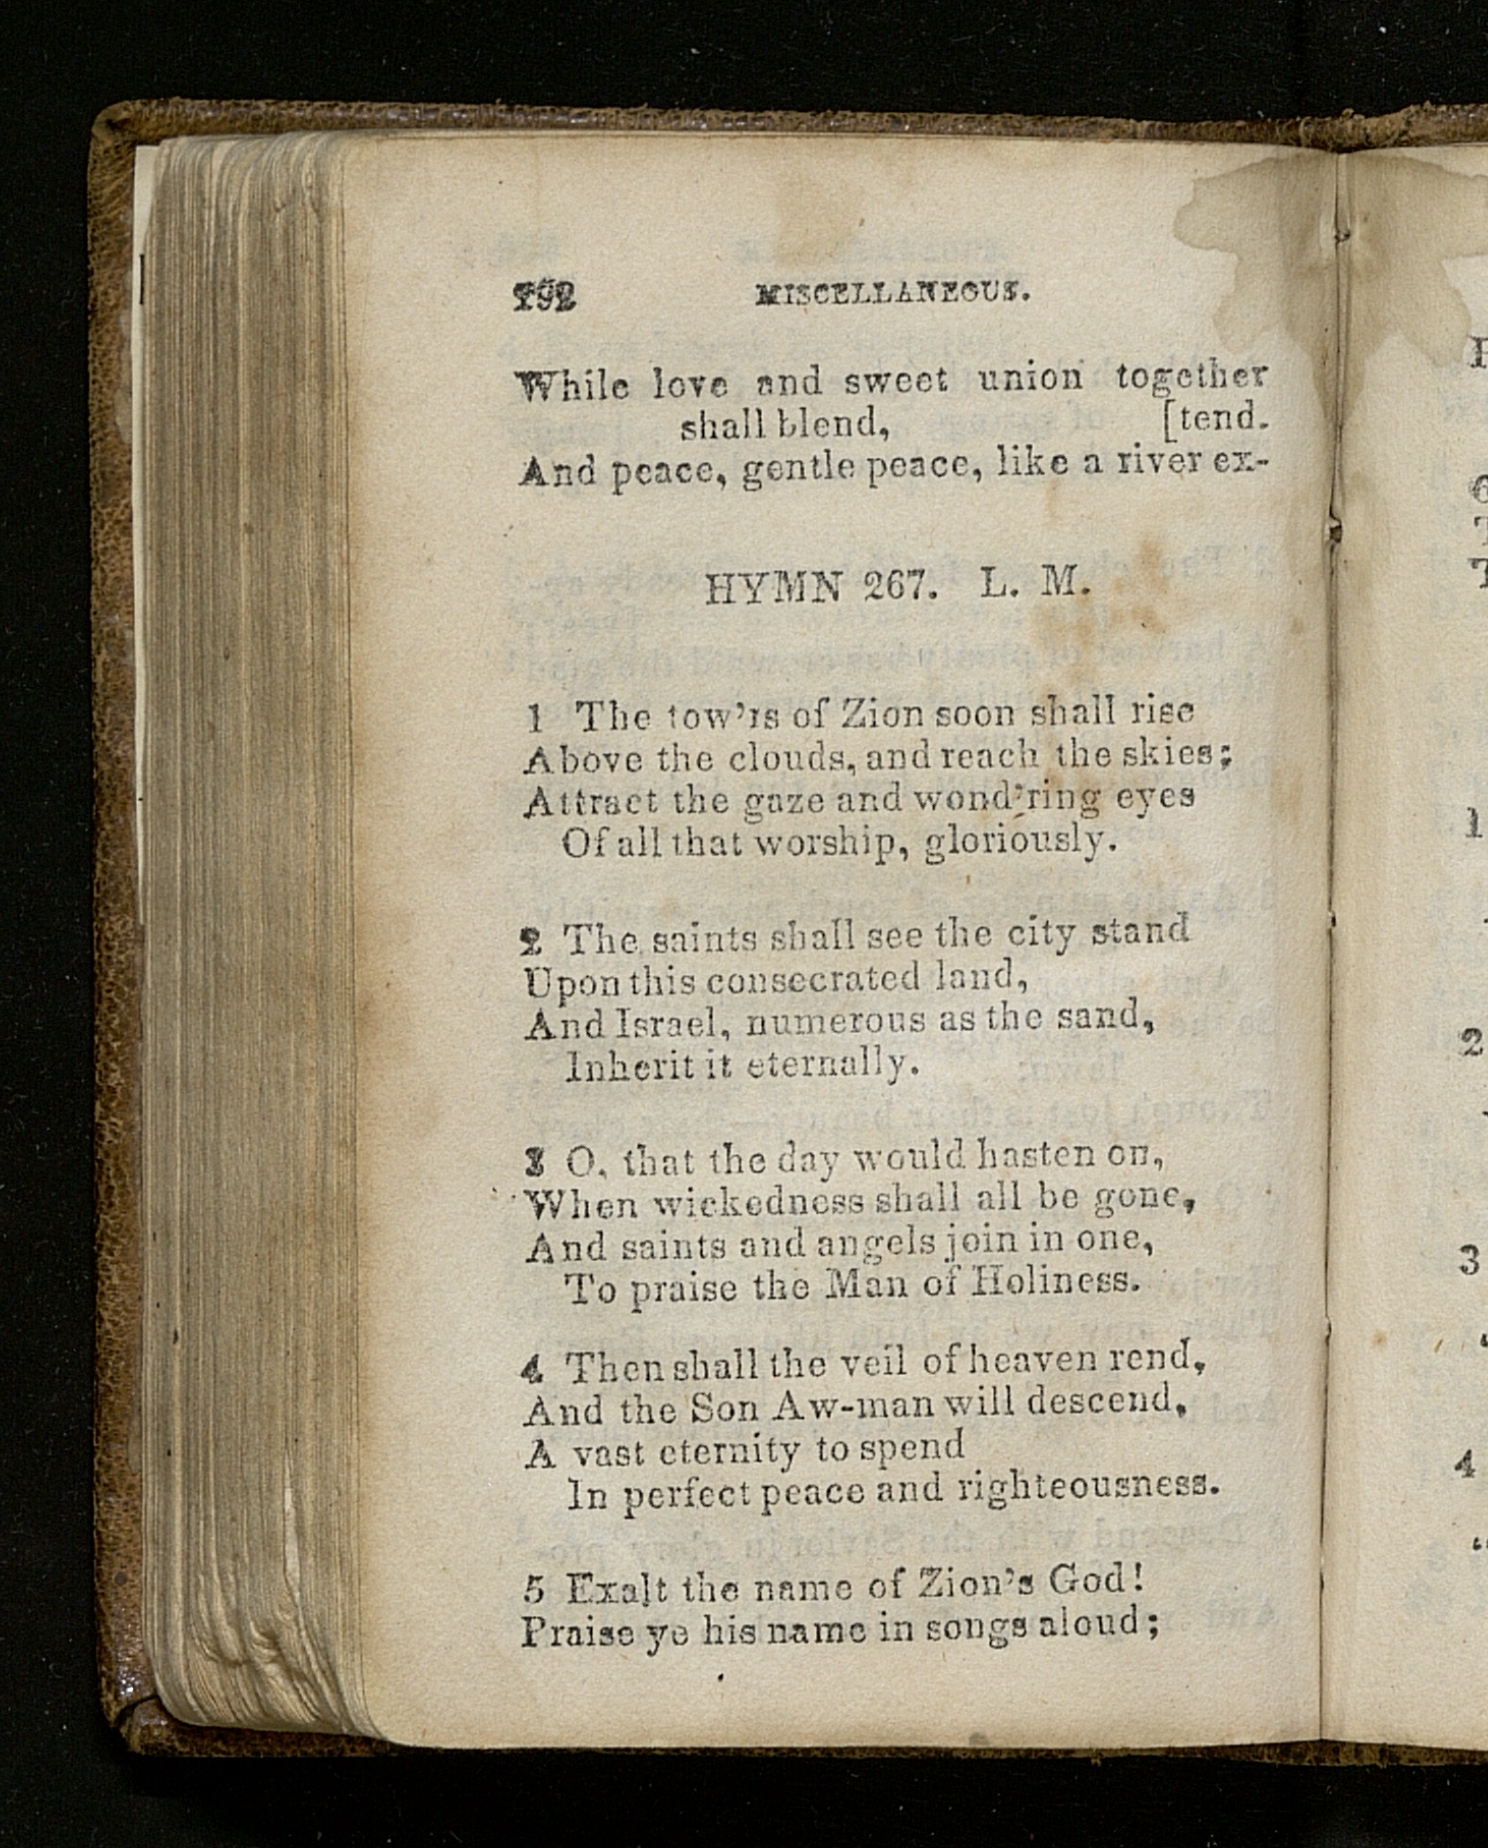 292 MISCELLANEOUS.
While love and sweet union together
shall blend, [tend.
And peace, gentle peace, like a river ex-
HYMN 267. L. M.
1 The tow'rs of Zion soon shall rise
Above the clouds, and reach the skies;
Attract the gaze and wond'ring eyes
Of all that worship, gloriously.
2 The saints shall see the city stand
Upon this consecrated land,
And Israel, numerous as the sand,
Inherit it eternally.
3 O, that the day would hasten on,
When wickedness shall all be gone,
And saints and angels join in one,
To praise the Man of Holiness.
4 Then shall the veil of heaven rend,
And the Son Aw-man will descend,
A vast eternity to spend
In perfect peace and righteousness.
5 Exalt the name of Zion's God!
Praise ye his name in songs aloud;
1
2
3
4